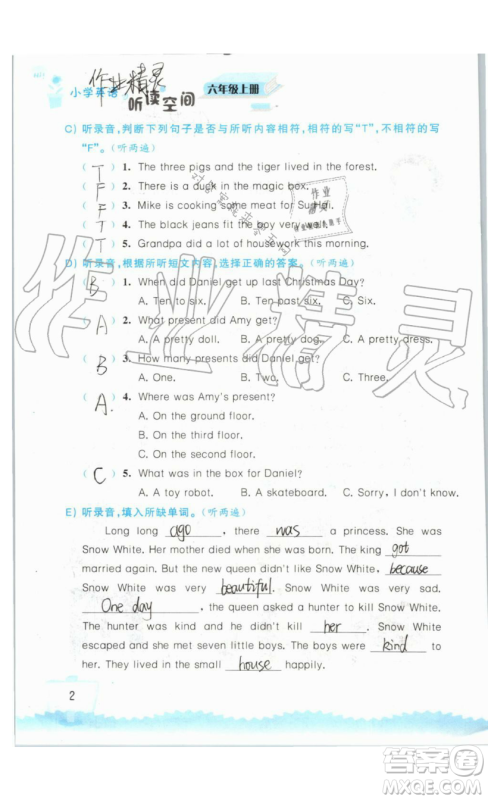 小学英语
作业精灵
听读空间
六年级上册
C) 听录音,判断下列句子是否与所听内容相符,相符的写“T”,不相符的写
“F”。(听两遍)
( T ) 1. The three pigs and the tiger lived in the forest.
( F ) 2. There is a duck in the magic box.
( F ) 3. Mike is cooking some meat for Su Hai.
( T ) 4. The black jeans fit the boy very well.
( T ) 5. Grandpa did a lot of housework this morning.
D) 听录音,根据所听短文内容,选择正确的答案。(听两遍)
( B ) 1. When did Daniel get up last Christmas Day?
A. Ten to six. B. Ten past six. C. Six.
( A ) 2. What present did Amy get?
A. A pretty doll. B. A pretty dog. C. A pretty dress.
( B ) 3. How many presents did Daniel get?
A. One. B. Two. C. Three.
( A. ) 4. Where was Amy's present?
A. On the ground floor.
B. On the third floor.
C. On the second floor.
( C ) 5. What was in the box for Daniel?
A. A toy robot. B. A skateboard. C. Sorry, I don't know.
E) 听录音,填入所缺单词。(听两遍)
Long long ago , there was a princess. She was
Snow White. Her mother died when she was born. The king got
married again. But the new queen didn't like Snow White, because
Snow White was very beautiful. Snow White was very sad.
One day , the queen asked a hunter to kill Snow White.
The hunter was kind and he didn't kill her . Snow White
escaped and she met seven little boys. The boys were kind
to her. They lived in the small house happily.
2
作业精灵
答案圈